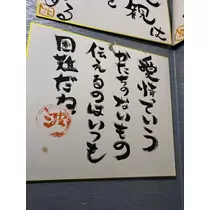 親は
と
める
愛情っていう
かたちのないもの
伝えるのはいつも
困難だね。